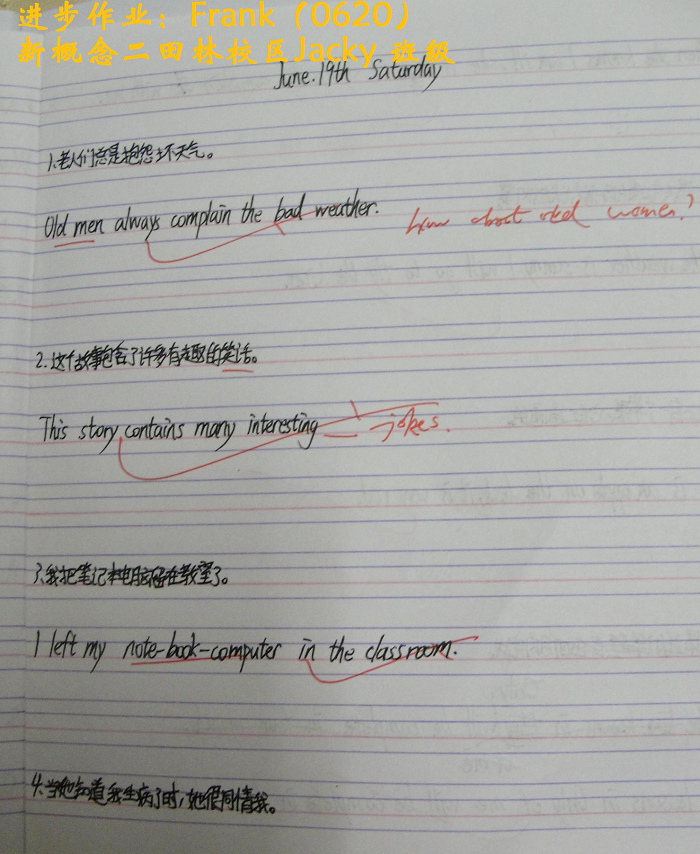 进步作业：Frank（0620）
新概念二田林校区Jacky 班级
June.19th Saturday
1.老人们总是抱怨坏天气。
Old men always complain the bad weather. How about old women?
2.这个故事包含了许多有趣的笑话。
This story contains many interesting — jokes.
3.我把笔记本电脑留在教室了。
I left my note-book-computer in the classroom.
4.当她知道我生病了时，她很同情我。